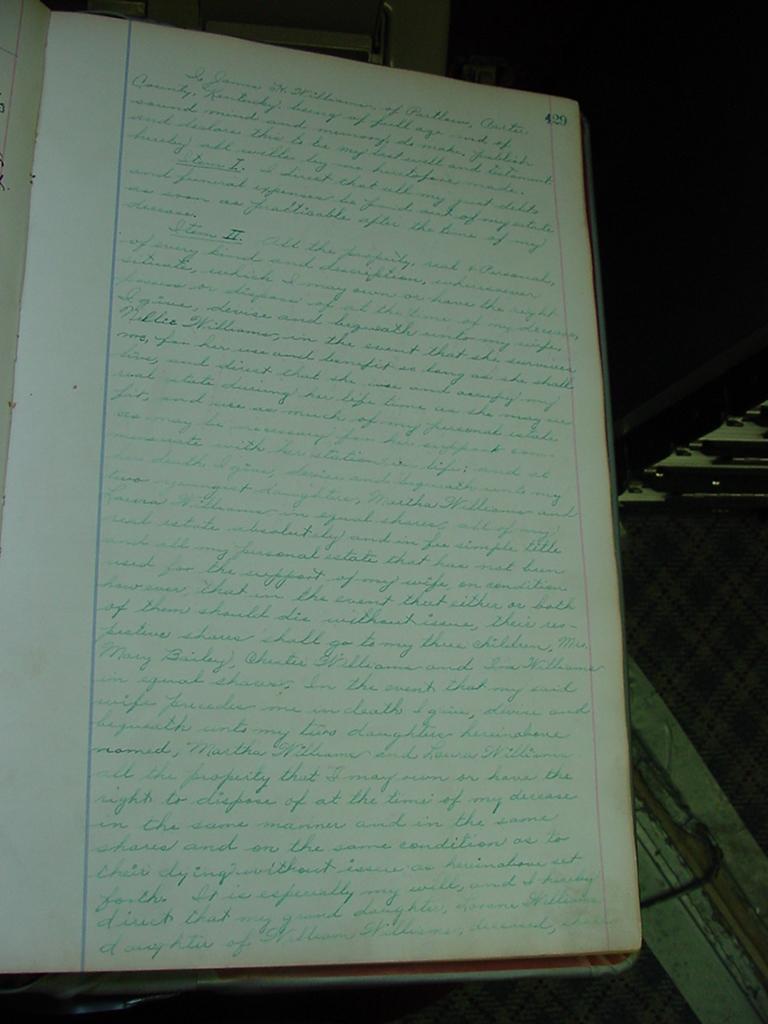 429
I James H. Williams, of Partlow, Carter
County, Kentucky, being of full age and of
sound mind and memory, do make, publish
and declare this to be my last will and testament
hereby all willes by me heretofore made.
Item I. I direct that all my just debts
and funeral expenses be paid out of my estate
as soon as practicable after the time of my
decease.
Item II. All the property, real & Personal,
of every kind and description, wheresoever
situate, which I may own or have the right
possess or dispose of at the time of my decease,
I give, devise and bequeath unto my wife,
Nellie Williams, in the event that she survives
me, for her use and benefit so long as she shall
live, and direct that she use and occupy my
real estate during her life time as she may see
fit, and use as much of my personal estate
as may be necessary for her support com-
mensurate with her station in life; and at
her death I give, devise and bequeath unto my
two youngest daughters, Martha Williams and
Laura Williams in equal shares, all of my
real estate absolutely and in fee simple title
and all my personal estate that has not been
used for the support of my wife, on condition
however, that in the event that either or both
of them should die without issue, their res-
pective shares shall go to my three children, Mrs.
Mary Bailey, Chester Williams and Williams
in equal shares. In the event that my said
wife precedes me in death I give, devise and
bequeath unto my two daughters hereinabove
named, Martha Williams and Laura Williams
all the property that I may own or have the
right to dispose of at the time of my decease
in the same manner and in the same
shares and on the same condition as to
their dying without issue as hereinabove set
forth. It is especially my will, and I hereby
direct that my grand daughter, Williams
daughter of William Williams, deceased,